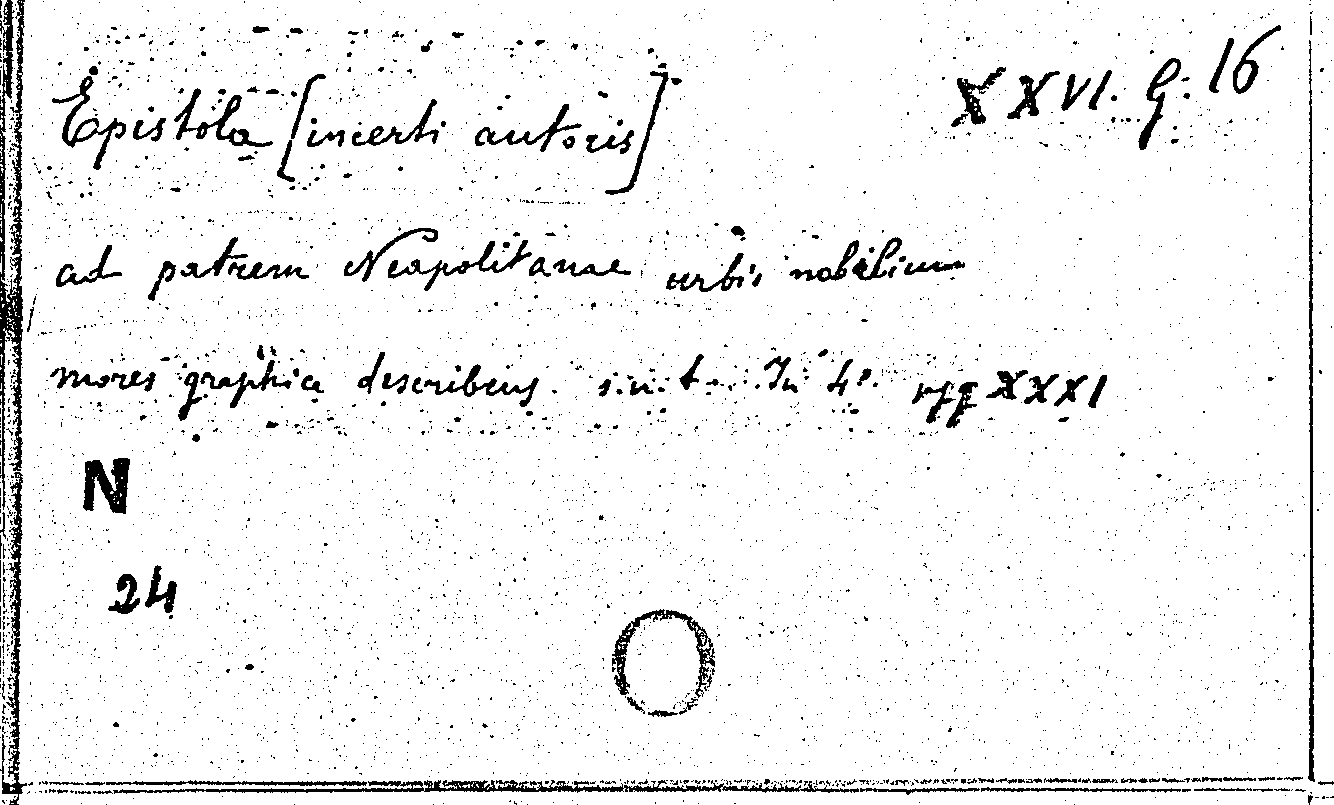 Epistola [incerti autoris] XXVI. G. 16
ad patrem Neapolitanae urbis nobilium
mores graphice describens. s.n.t. In 4°. pp XXXI
N
24